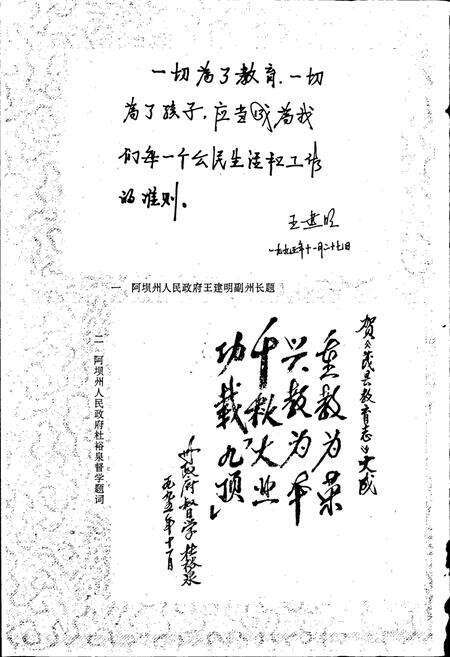 一切为了教育，一切
为了孩子，应当成为我
们每一个公民生活和工作
的准则。
王建明
一九九五年十一月二十九日
一 阿坝州人民政府王建明副州长题
贺《茂县教育志》大成
重教为荣
兴教为本
千秋大业
功载九顶
州政府督学杜裕泉
一九九五年十一月
二 阿坝州人民政府杜裕泉督学题词